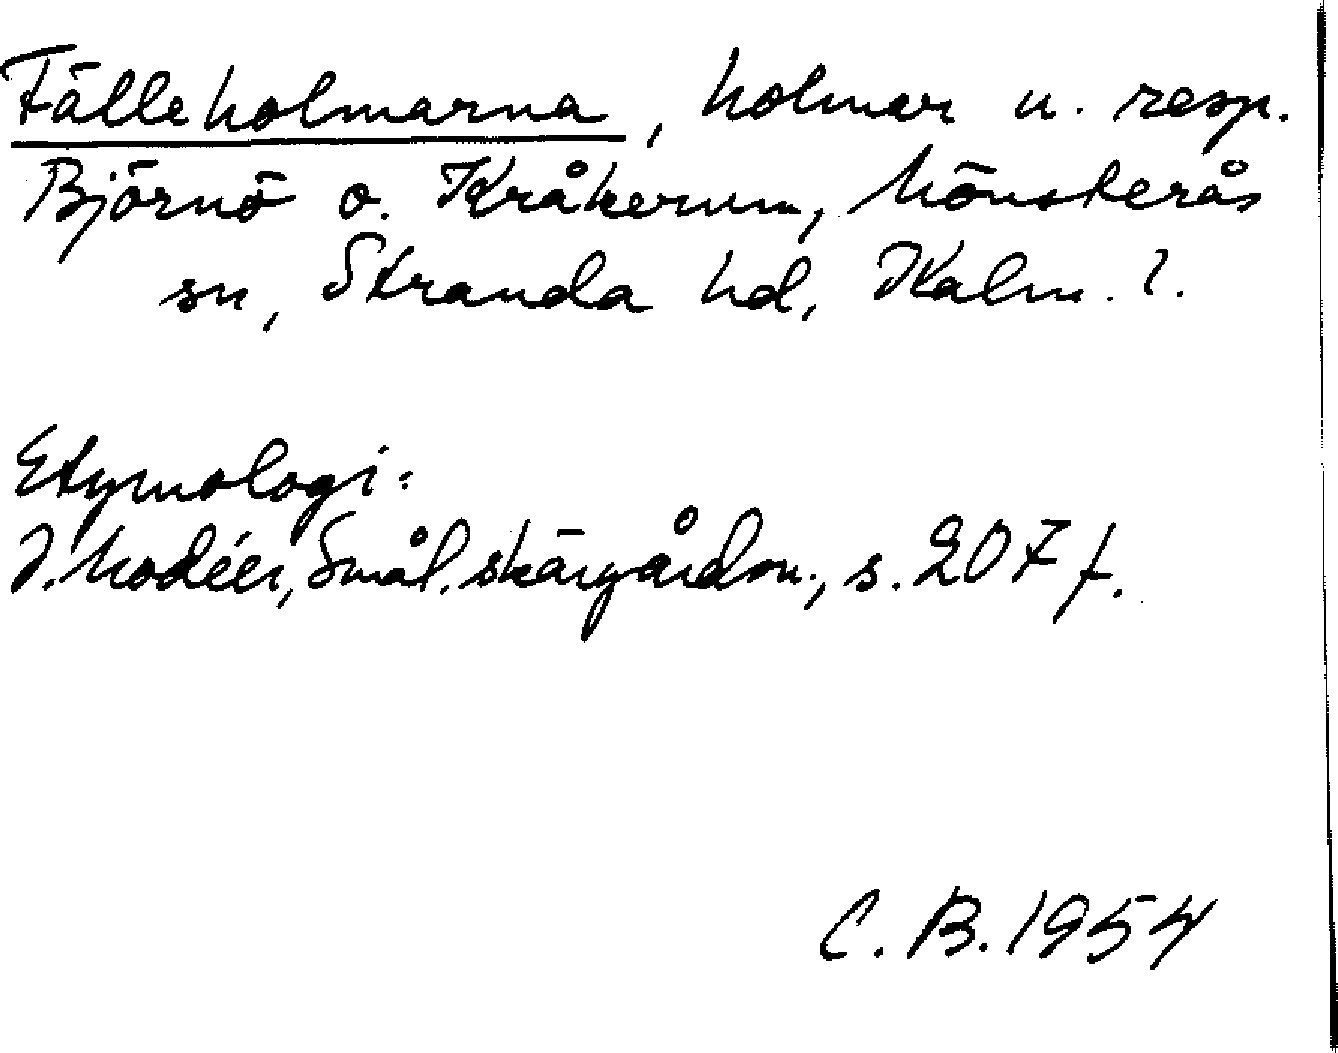 Fälleholmarna, holmar u. resp.
Björnö o. Kråkerum, Mönsterås
sn, Stranda hd, Kalm. l.
Etymologi:
I. Modéer, Smål. skärgårdsn., s. 207 f.
C. B. 1954